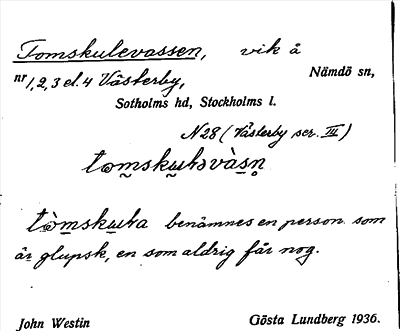 Tomskulevassen, vik å
nr 1, 2, 3 el. 4 Västerby,
Nämdö sn,
Sotholms hd, Stockholms l.
N 28 (Västerby ser. III)
benämnes en person som
är glupsk, en som aldrig får nog.
John Westin Gösta Lundberg 1936.